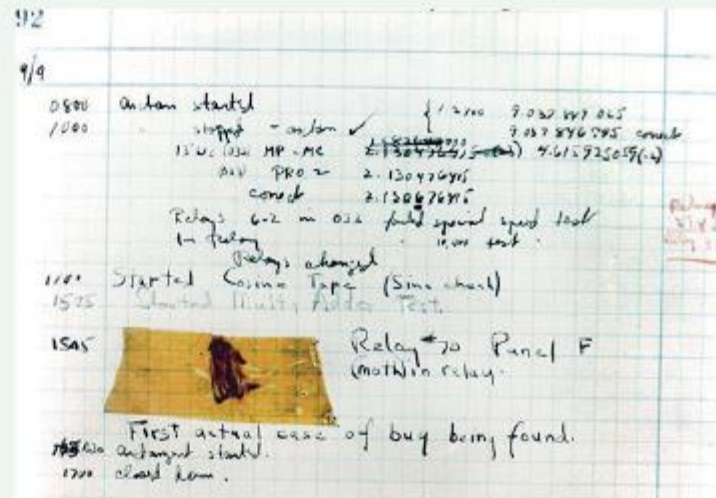 92
9/9
0800 antan started
1000 " stopped - antan ✓ { 1.2700 9.037 847 025
9.037 846 795 correct
13"uc (032) MP - MC 2.130476415 4.615925059(-2)
033 PRO 2 2.130476415
correct 2.130676415
Relays 6-2 in 033 failed special speed test
In Relay " 10,000 test .
Relays changed
1100 Started Cosine Tape (Sine check)
1525 Started Multi Adder Test.
1545 Relay #70 Panel F
(moth) in relay.
First actual case of bug being found.
1630 antangent started.
1700 closed down.